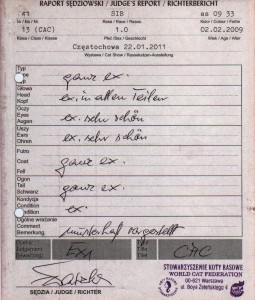 RAPORT SĘDZIOWSKI / JUDGE'S REPORT / RICHTERBERICHT
41 SIB as 09 33
13 (CAC) 1.0 02/02/2009
Klasa / Class / Klasse Płeć / Sex / Geschlecht Wiek / Age / Alter
Częstochowa 22.01.2011
Wystawa / Cat Show / Rassekatzen-Ausstellung
Typ
Type
ganz ex.
Głowa
Head
Kopf
ex. in allen Teilen
Oczy
Eyes
Augen
ex. sehr schön
Uszy
Ears
Ohren
ex. sehr schön
Futro
Coat
Fell
ganz ex.
Ogon
Tail
Schwanz
ganz ex.
Kondycja
Condition
Kondition
ex.
Ogólne wrażenie
Comment
Bemerkung
musterhaft vorgestellt
Ocena
Ex1
CAC
SĘDZIA / JUDGE / RICHTER
STOWARZYSZENIE KOTY RASOWE
WORLD CAT FEDERATION
00-621 Warszawa
ul. Boya Żeleńskiego 4